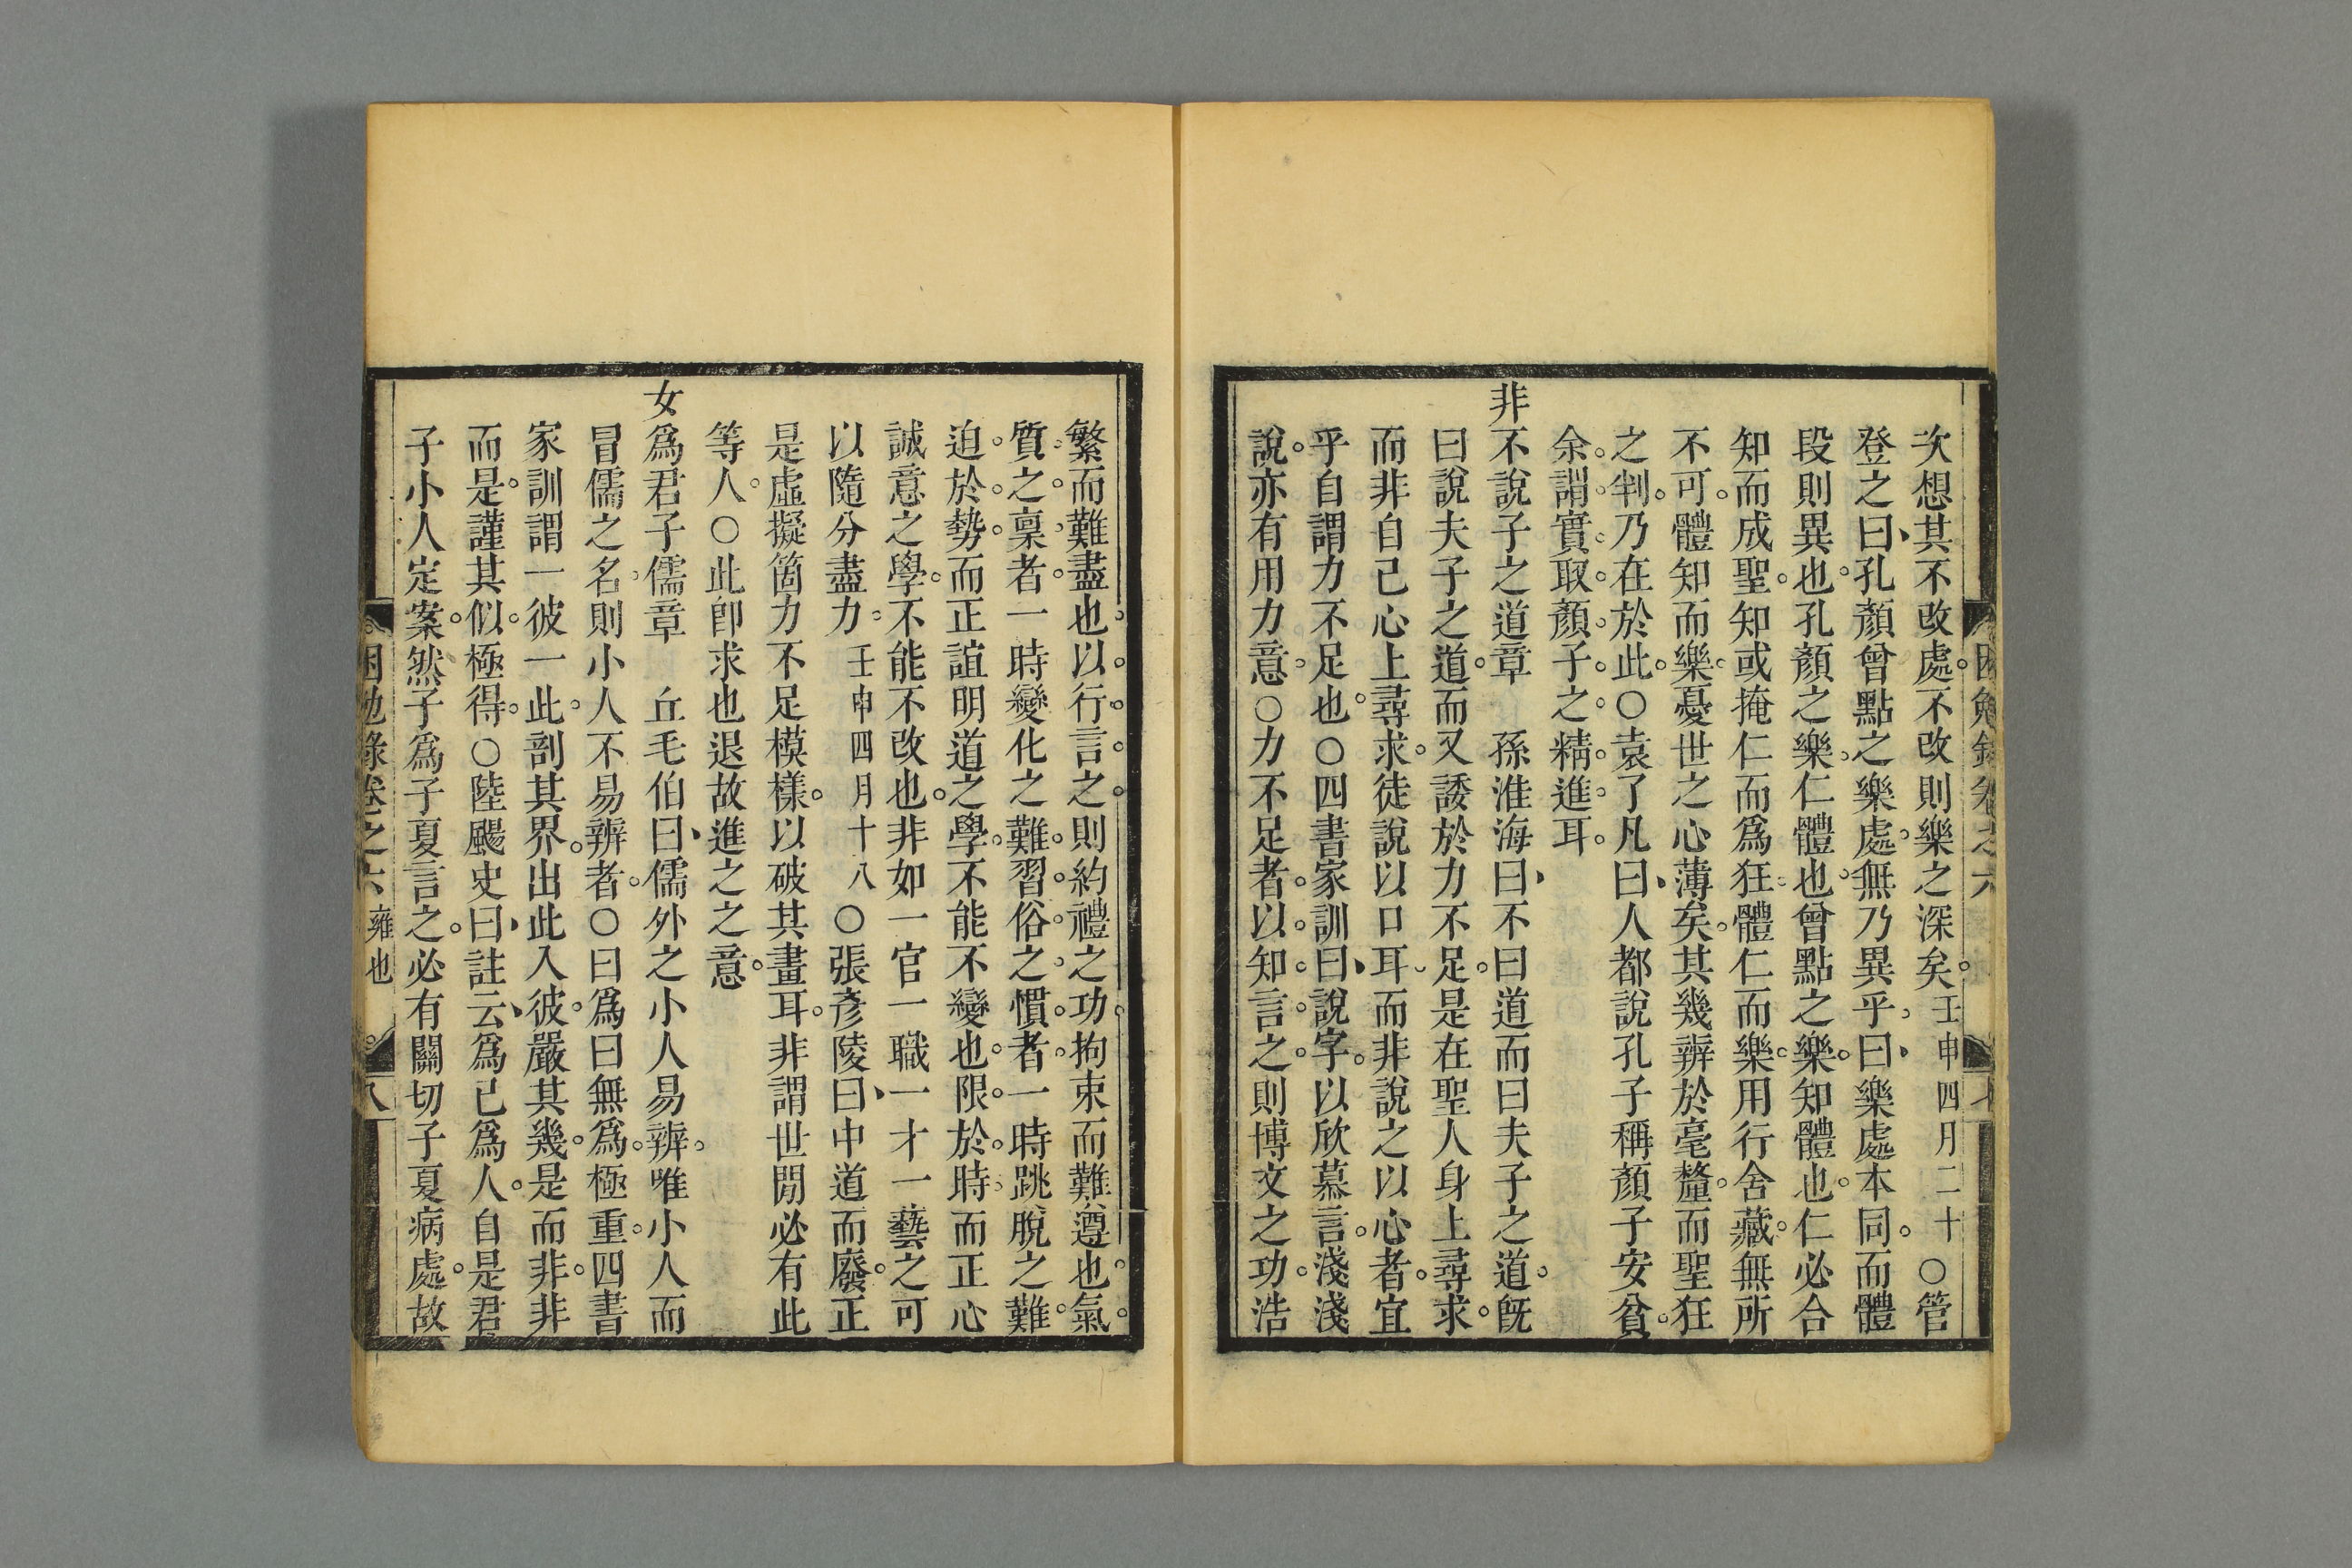 困勉錄卷之六
次想其不改處。不改則樂之深矣。壬申四月二十○管
登之曰、孔顏曾點之樂處。無乃異乎。曰、樂處本同。而體
段則異也。孔顏之樂。仁體也。曾點之樂。知體也。仁必合
知而成聖。知或掩仁而爲狂。體仁而樂。用行舍藏。無所
不可。體知而樂。憂世之心薄矣。其幾辨於毫釐。而聖狂
之判。乃在於此。○袁了凡曰、人都說孔子稱顏子安貧。
余。謂。實。取。顏。子。之。精。進。耳。
非不說子之道章　孫淮海曰、不曰道而曰夫子之道。旣
曰說夫子之道。而又諉於力不足。是在聖人身上尋求。
而非自己心上尋求。徒說以口耳。而非說之以心者。宜
乎自謂力不足也。○四書家訓曰、說字。以欣慕言。淺淺
說。亦有用力意。○力不足者。以。知。言。之。則博文之功。浩
繁而難盡也。以。行。言。之。則約禮之功。拘束而難遵也。氣。
質。之。稟。者。一時變化之難。習。俗。之。慣。者。一時跳脫之難。
迫。於。勢。而正誼明道之學。不能不變也。限。於。時。而正心
誠意之學。不能不改也。非如一官一職一才一藝之可
以隨分盡力。壬申四月十八○張彥陵曰、中道而廢。正
是虛擬箇力不足模樣。以破其畫耳。非謂世閒必有此
等人。○此卽求也退故進之之意。
女爲君子儒章　丘毛伯曰、儒外之小人易辨。唯小人而
冒儒之名。則小人不易辨者。○曰爲曰無爲。極重。四書
家訓謂一彼一此。剖其界。出此入彼。嚴其幾。是而非。非
而是。謹其似。極得。○陸颺史曰、註云、爲已爲人。自是君
子小人定案。然子爲子夏言之。必有關切子夏病處。故
困勉錄卷之六　雍也　八